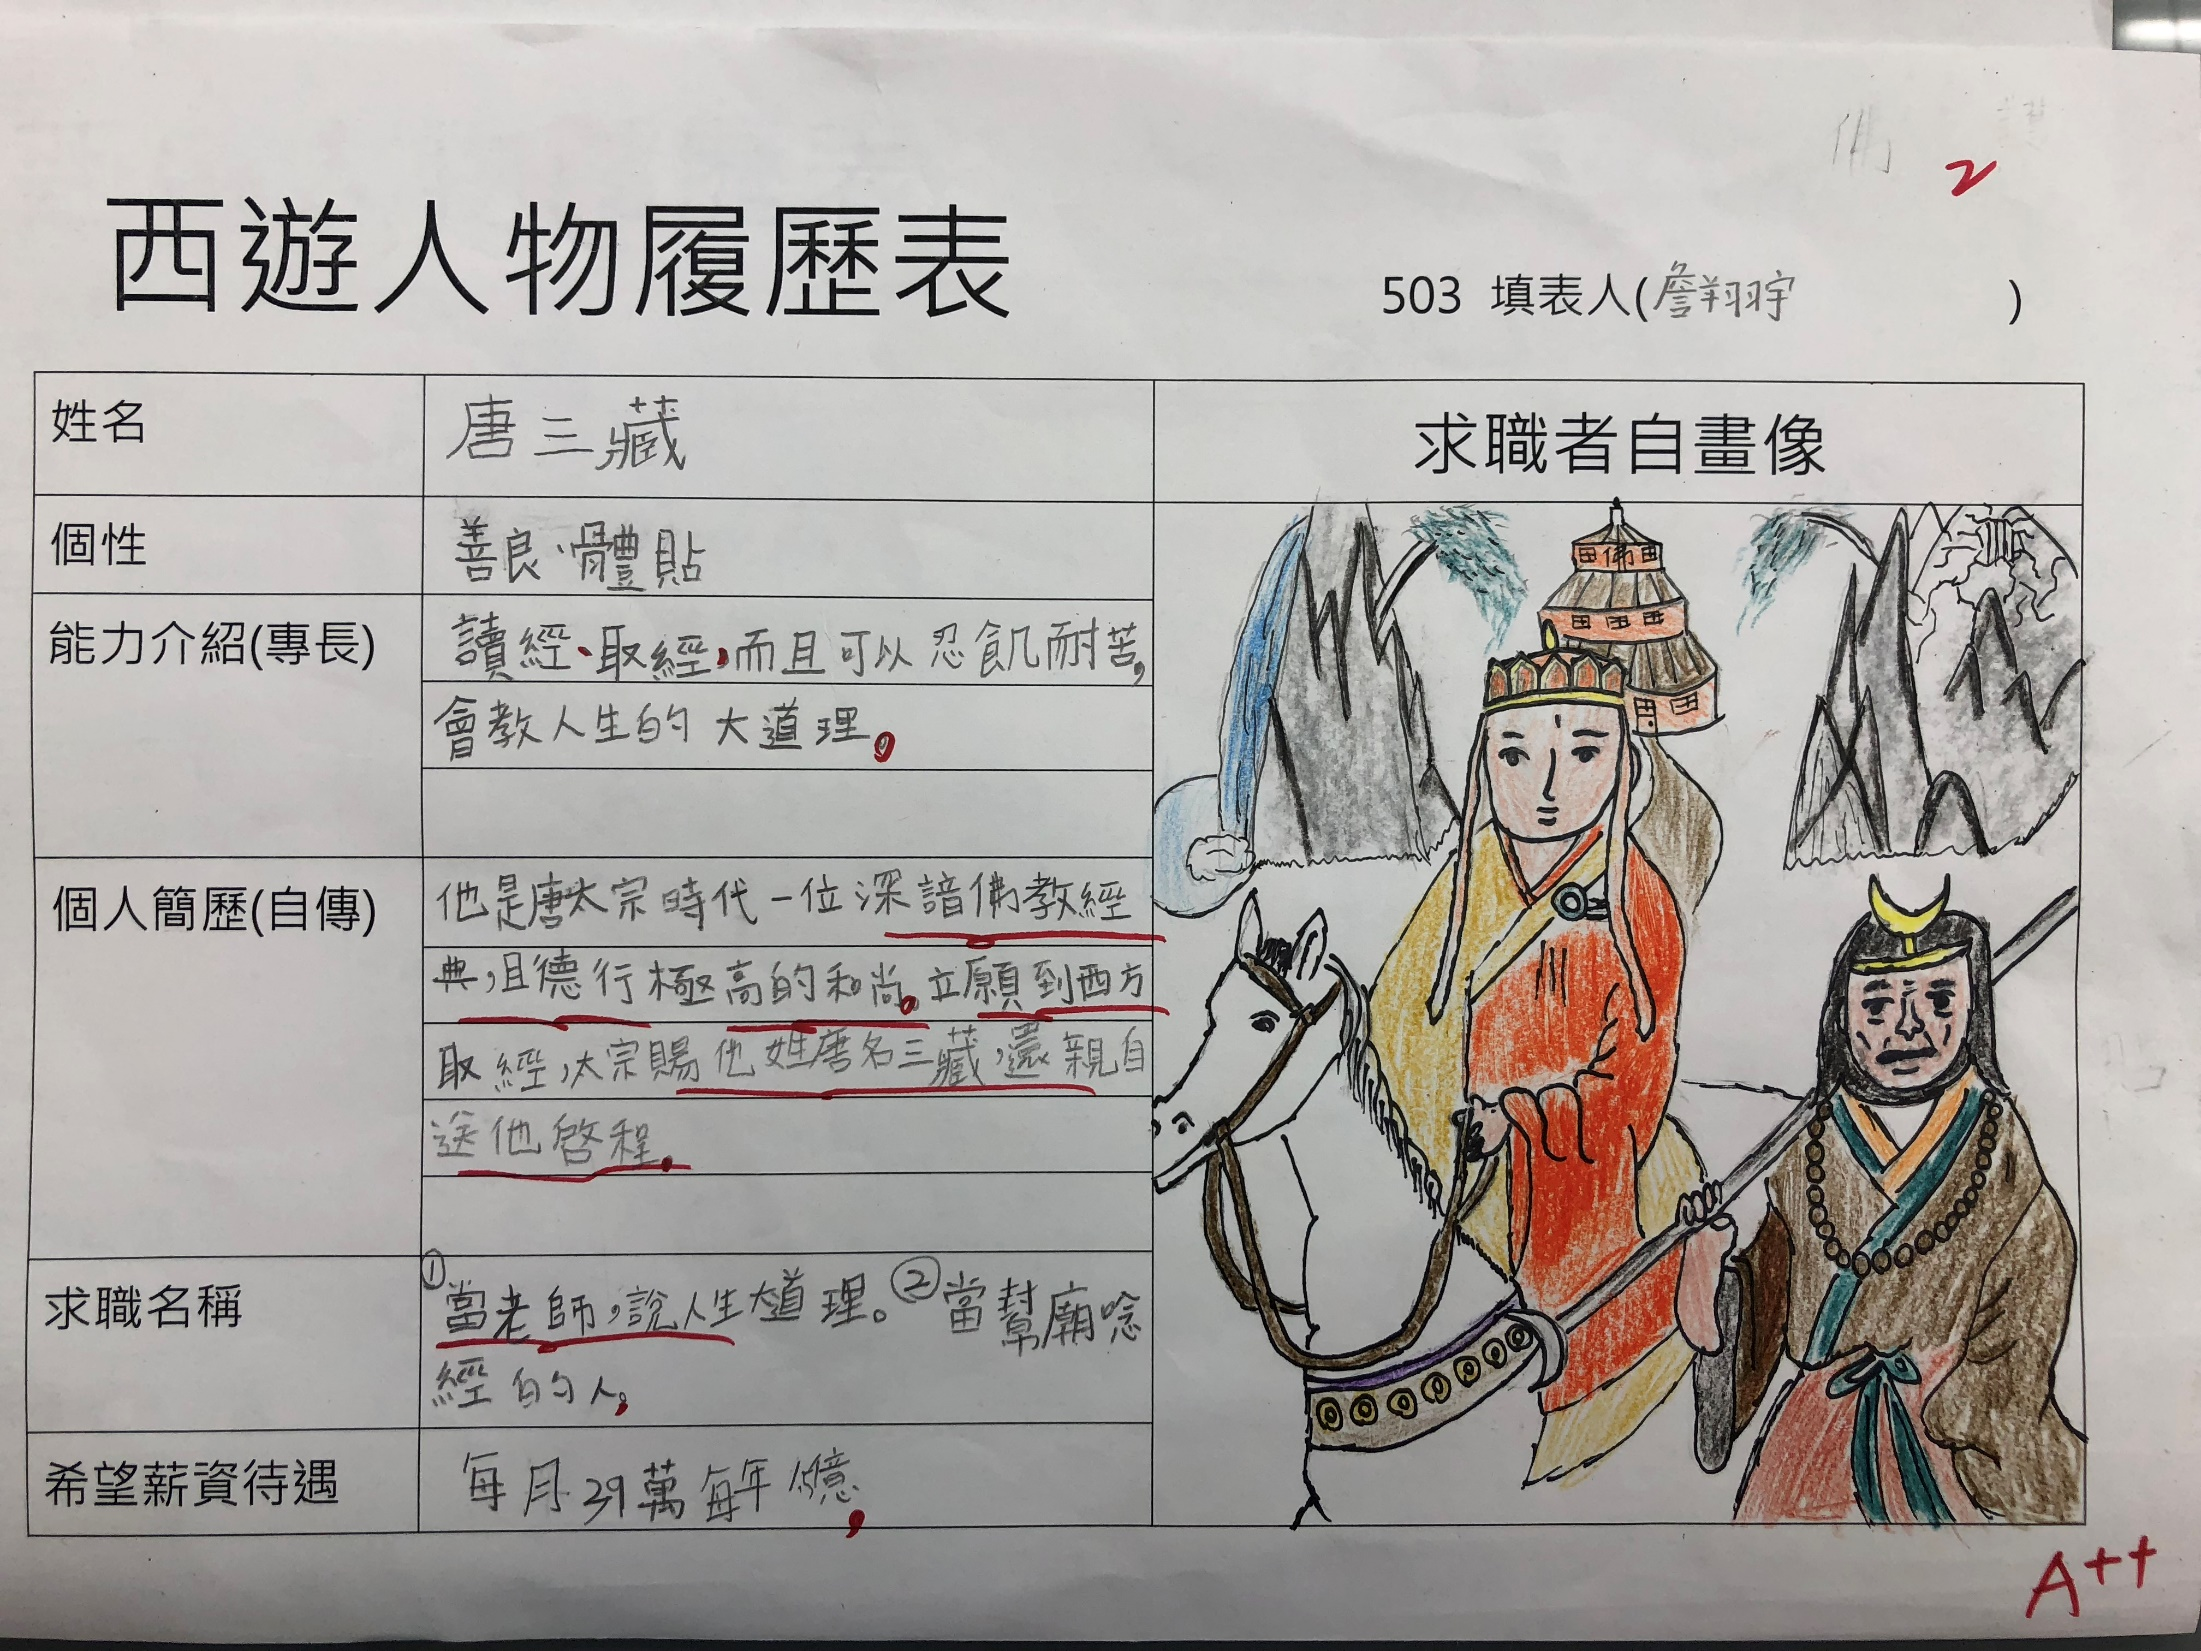 佛
2
西遊人物履歷表
503 填表人(詹翔宇)
姓名
唐三藏
求職者自畫像
個性
善良、體貼
能力介紹(專長)
讀經、取經,而且可以忍飢耐苦,
會教人生的大道理。
個人簡歷(自傳)
他是唐太宗時代一位深諳佛教經
典,且德行極高的和尚。立願到西方
取經,太宗賜他姓唐名三藏,還親自
送他啓程。
求職名稱
①當老師,說人生大道理。②當幫廟唸
經的人。
希望薪資待遇
每月39萬每年億。
佛
A++